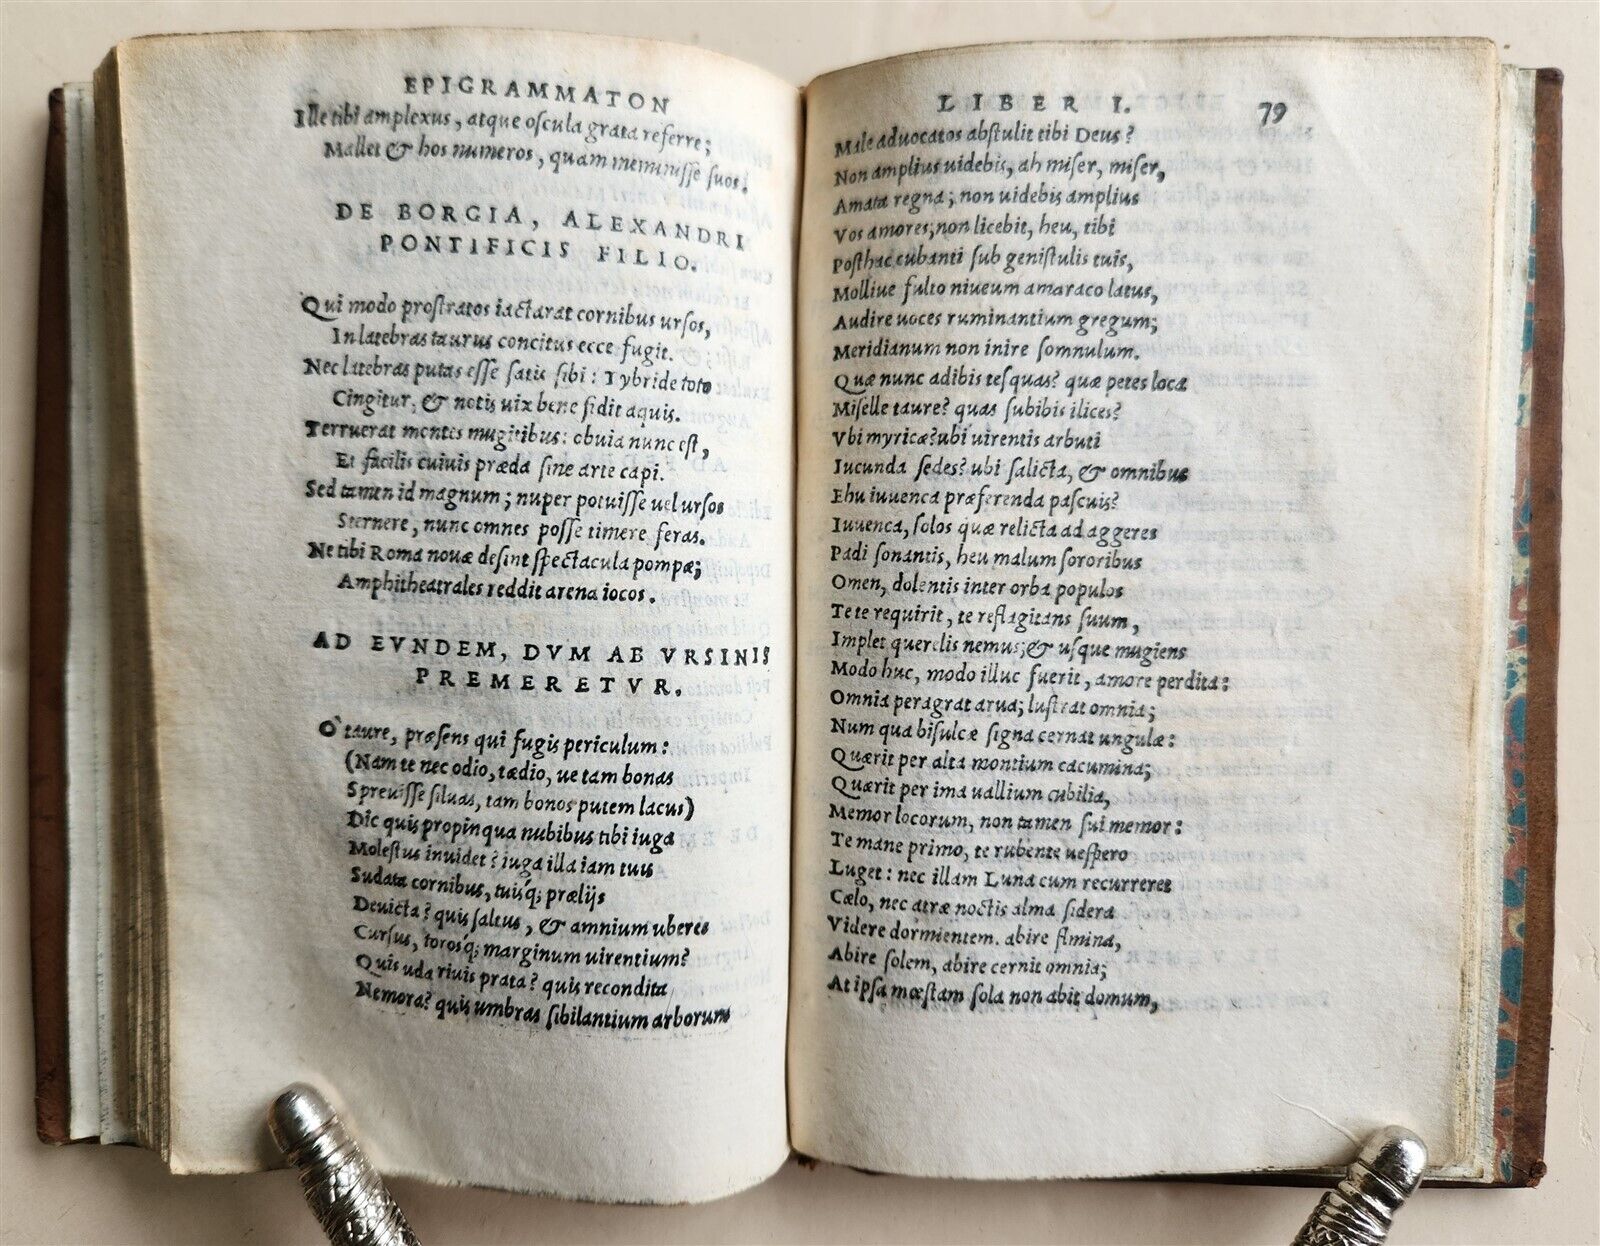 EPIGRAMMATON
Ille tibi amplexus, atque oscula grata referre;
Mallet & hos numeros, quam meminisse suos.
DE BORGIA, ALEXANDRI
PONTIFICIS FILIO.
Qui modo prostratos iactarat cornibus ursos,
In latebras taurus concitus ecce fugit.
Nec latebras putas esse satis sibi: Tybride toto
Cingitur, & notis uix bene fidit aquis.
Terruerat montes mugitibus: obuia nunc est,
Et facilis cuiuis præda sine arte capi.
Sed tamen id magnum; nuper potuisse uel ursos
Sternere, nunc omnes posse timere feras.
Ne tibi Roma nouæ desint spectacula pompæ;
Amphitheatrales reddit arena iocos.
AD EVNDEM, DVM AB VRSINIS
PREMERETVR.
O' taure, præsens qui fugis periculum:
(Nam te nec odio, tædio, ue tam bonas
Spreuisse siluas, tam bonos putem lacus)
Dic quis propinqua nubibus tibi iuga
Molestus inuidet? iuga illa iam tuis
Sudata cornibus, tuisq́; prælijs
Deuicta? quis saltus, & amnium uberes
Cursus, torosq́; marginum uirentium?
Quis uda riuis prata? quis recondita
Nemora? quis umbras sibilantium arborum
LIBER I. 79
Male aduocatos abstulit tibi Deus?
Non amplius uidebis, ah miser, miser,
Amata regna; non uidebis amplius
Vos amores; non licebit, heu, tibi
Posthac cubanti sub genistulis tuis,
Molliue fulto niueum amaraco latus,
Audire uoces ruminantium gregum;
Meridianum non inire somnulum.
Quæ nunc adibis tesquas? quæ petes loca
Miselle taure? quas subibis ilices?
Vbi myricæ? ubi uirentis arbuti
Iucunda sedes? ubi salicta, & omnibus
Ehu iuuenca præferenda pascuis?
Iuuenca, solos quæ relicta ad aggeres
Padi sonantis, heu malum sororibus
Omen, dolentis inter orba populos
Te te requirit, te reflagitans suum,
Implet querelis nemus; & usque mugiens
Modo huc, modo illuc fuerit, amore perdita:
Omnia peragrat arua; lustrat omnia;
Num qua bisulcæ signa cernat ungulæ:
Quærit per alta montium cacumina;
Quærit per ima uallium cubilia,
Memor locorum, non tamen sui memor:
Te mane primo, te rubente uespero
Luget: nec illam Luna cum recurreret
Cælo, nec atræ noctis alma sidera
Videre dormientem. abire flmina,
Abire solem, abire cernit omnia;
At ipsa mœstam sola non abit domum,